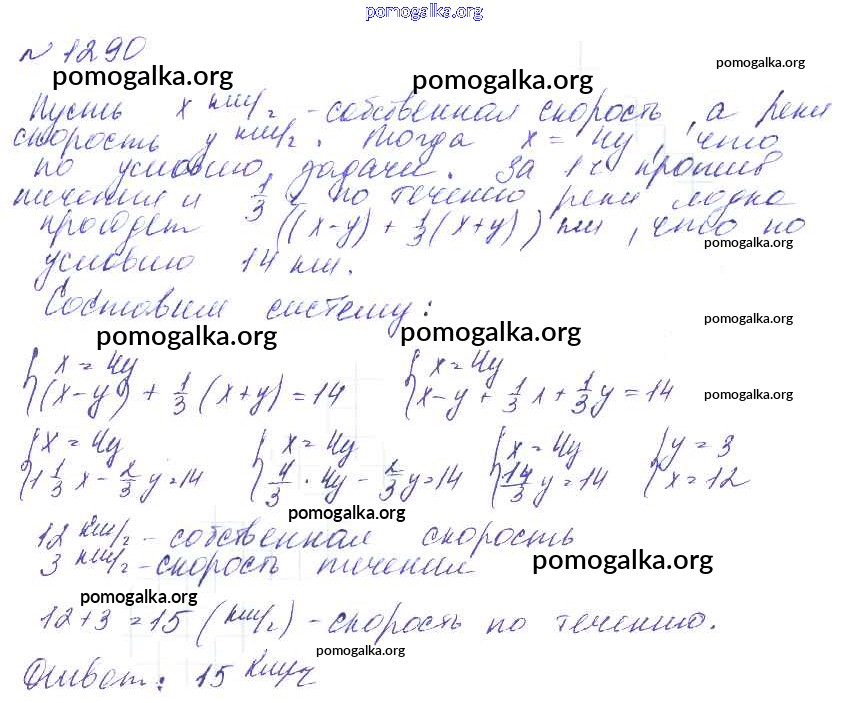 pomogalka.org
№ 1290
pomogalka.org pomogalka.org pomogalka.org
Пусть x км/ч - собственная скорость, а реки
скорость y км/ч. Тогда x = 4y, что
по условию задачи. За 1 ч против
течения и 1/3 ч по течению реки лодка
пройдет ((x-y) + 1/3 (x+y)) км, что по
pomogalka.org
условию 14 км.
Составим систему:
pomogalka.org pomogalka.org pomogalka.org
{ x = 4y { x = 4y
{ (x-y) + 1/3 (x+y) = 14 { x-y + 1/3 x + 1/3 y = 14
pomogalka.org
{ x = 4y { x = 4y { x = 4y { y = 3
{ 1 1/3 x - 2/3 y = 14 { 4/3 · 4y - 2/3 y = 14 { 14/3 y = 14 { x = 12
pomogalka.org
12 км/ч - собственная скорость
3 км/ч - скорость течения
pomogalka.org
pomogalka.org
12+3 = 15 (км/ч) - скорость по течению.
pomogalka.org
Ответ: 15 км/ч